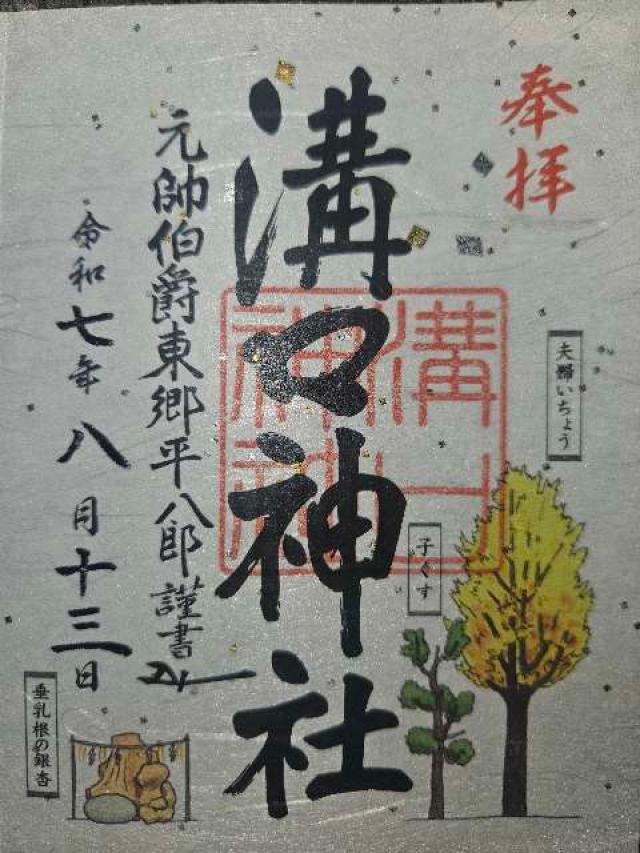 奉拝
夫婦いちょう
溝口神社
溝口神社
子くす
元帥伯爵東郷平八郎謹書
令和七年八月十三日
垂乳根の銀杏